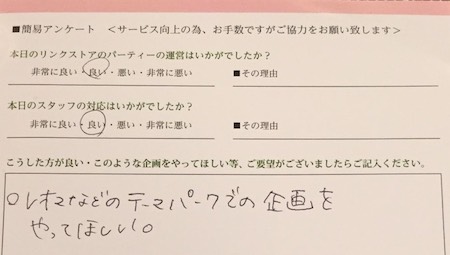 ■簡易アンケート　＜サービス向上の為、お手数ですがご協力をお願い致します＞
本日のリンクストアのパーティーの運営はいかがでしたか？
非常に良い・良い・悪い・非常に悪い　■その理由
本日のスタッフの対応はいかがでしたか？
非常に良い・良い・悪い・非常に悪い　■その理由
こうした方が良い・このような企画をやってほしい等、ご要望がございましたらご記入ください。
○レオマなどのテーマパークでの企画を
やってほしい。